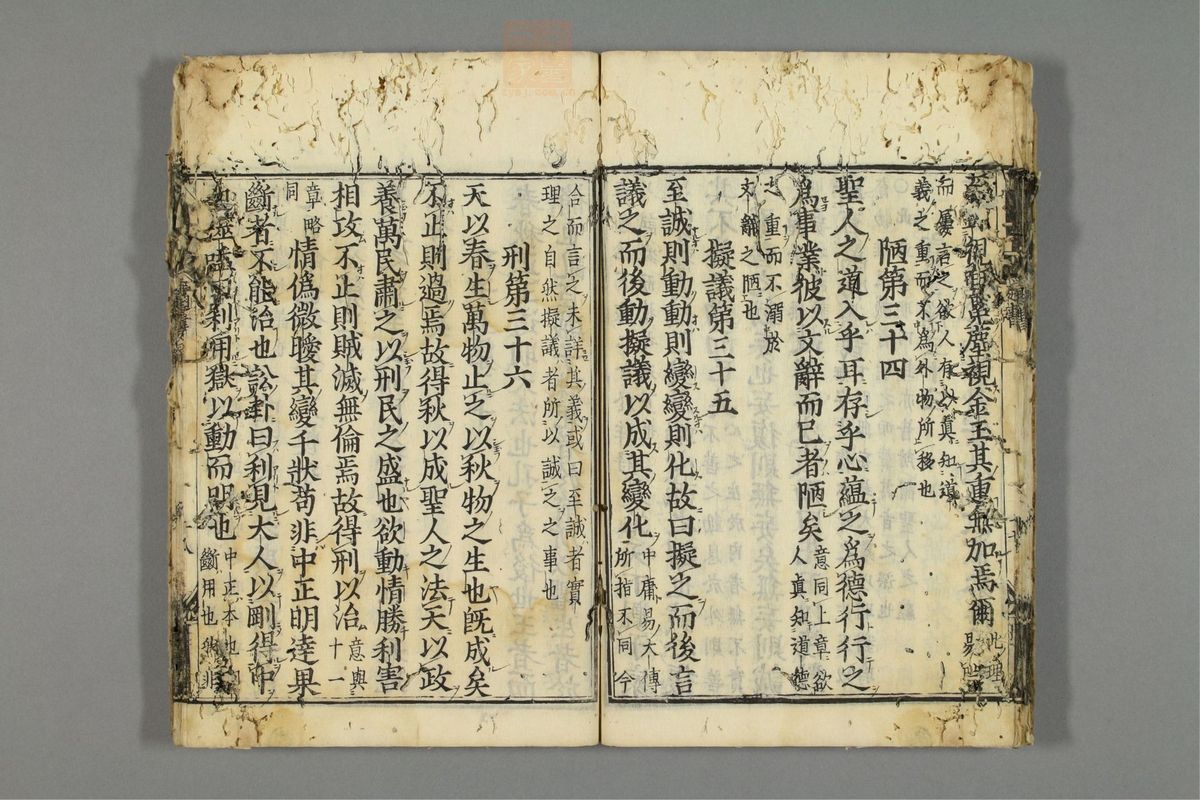 視金玉其重無加焉爾 此理易
而屢言之欲人有以真知道
義之重而不為外物所移也
陋第三十四
聖人之道入乎耳存乎心蘊之爲德行行之
爲事業彼以文辭而已者陋矣 意同上章欲
人真知道德
之重而不溺於
文辭之陋也
擬議第三十五
至誠則動動則變變則化故曰擬之而後言
議之而後動擬議以成其變化 中庸易大傳
所指不同今
合而言之未詳其義或曰至誠者實
理之自然擬議者所以誠之之事也
刑第三十六
天以春生萬物止之以秋物之生也既成矣
不止則過焉故得秋以成聖人之法天以政
養萬民肅之以刑民之盛也欲動情勝利害
相攻不止則賊滅無倫焉故得刑以治 意與十一
章略同
情僞微曖其變千狀苟非中正明達果
斷者不能治也訟卦曰利見大人以剛得中
也噬嗑曰利用獄以動而明也 中正本也
斷用也然非